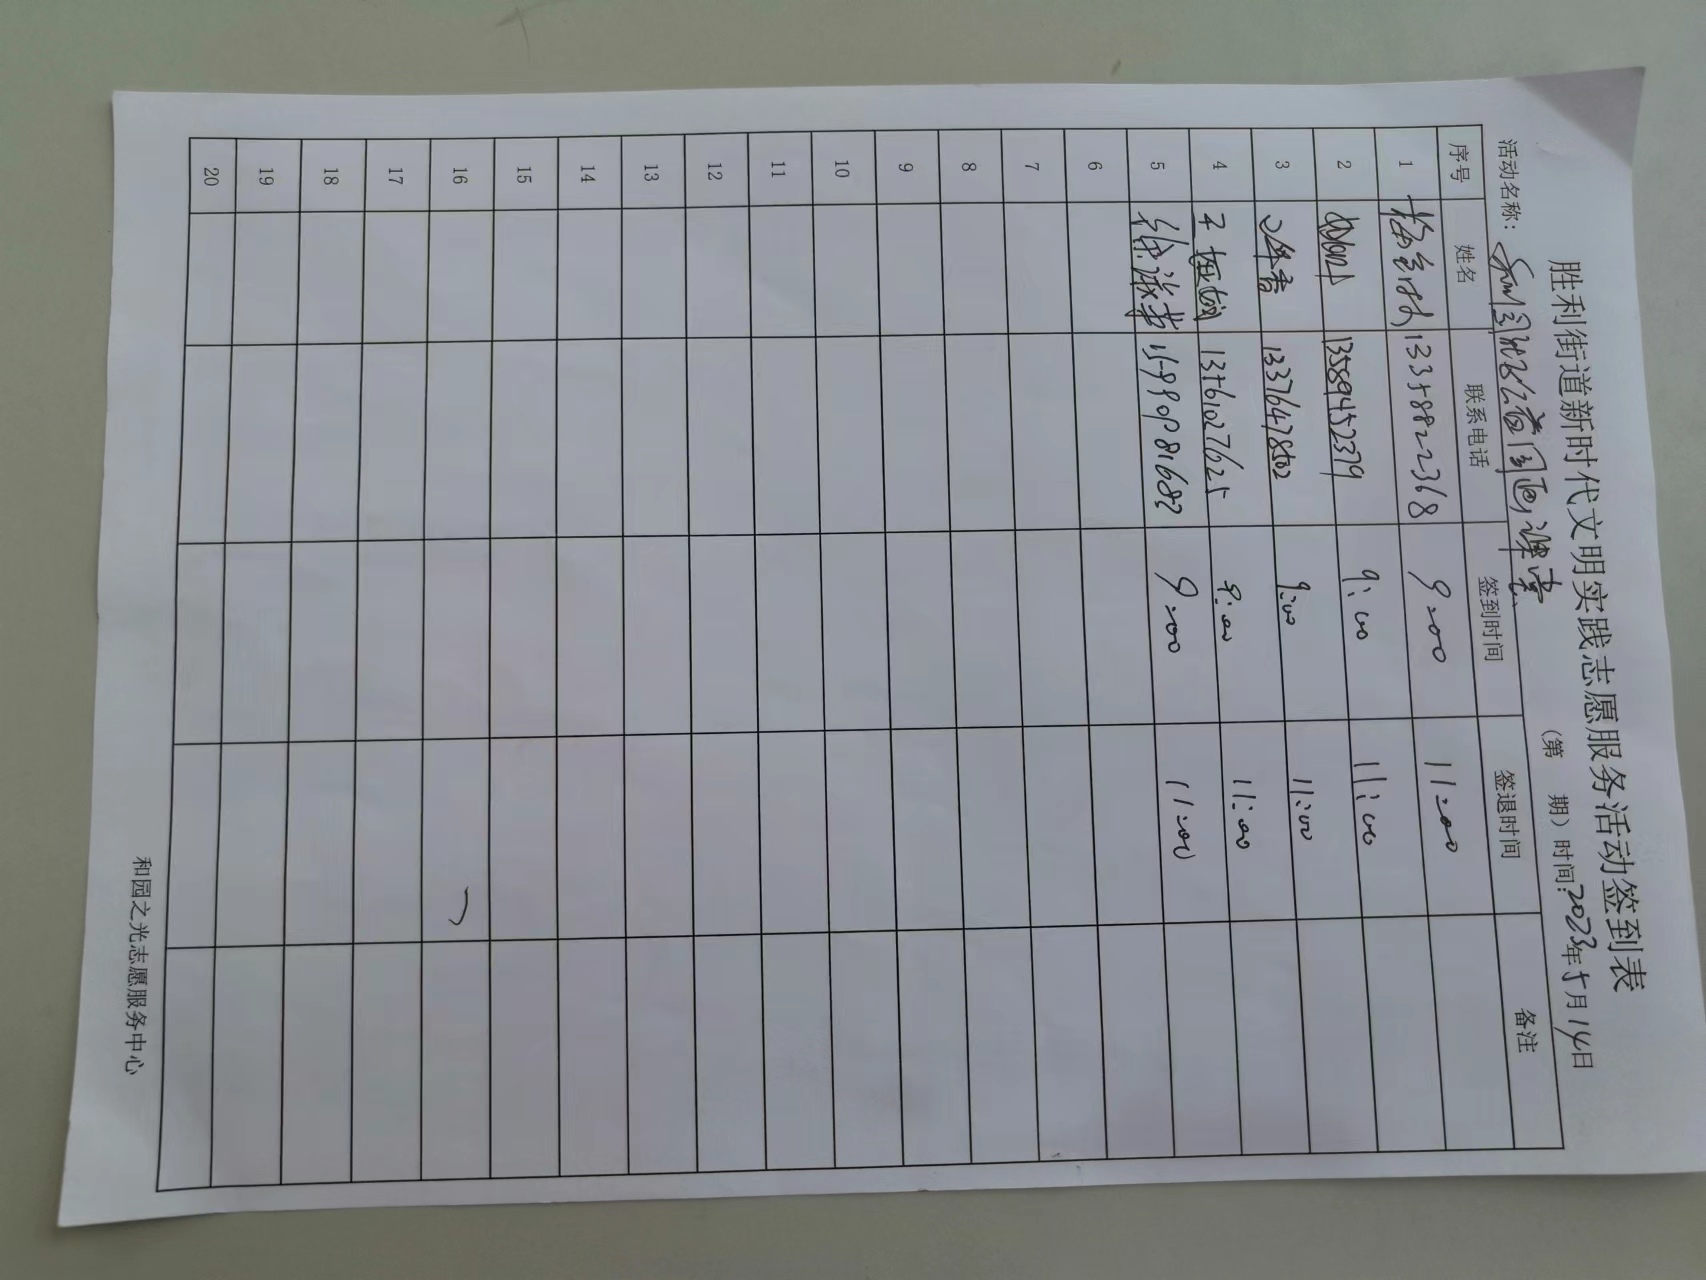 胜利街道新时代文明实践志愿服务活动签到表
(第 期) 时间:2023年5月14日
活动名称: 公益国画课堂
序号 姓名 联系电话 签到时间 签退时间 备注
1 13358822368 9:00 11:00
2 13589452379 9:00 11:00
3 13376478502 9:00 11:00
4 13561027625 9:00 11:00
5 徐淑英 9:00 11:00
6
7
8
9
10
11
12
13
14
15
16
17
18
19
20
和园之光志愿服务中心